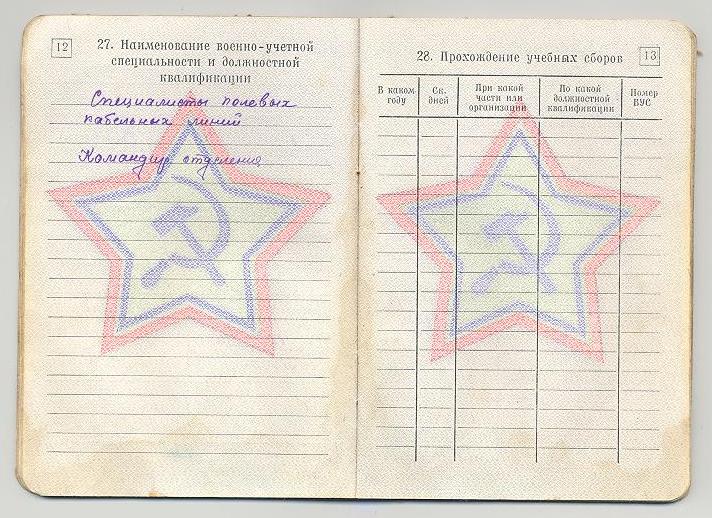 12
27. Наименование военно-учетной
специальности и должностной
квалификации
Специалисты полевых
кабельных линий
Командир отделения
28. Прохождение учебных сборов
13
В каком
году
Ск.
дней
При какой
части или
организации
По какой
должностной
квалификации
Номер
ВУС